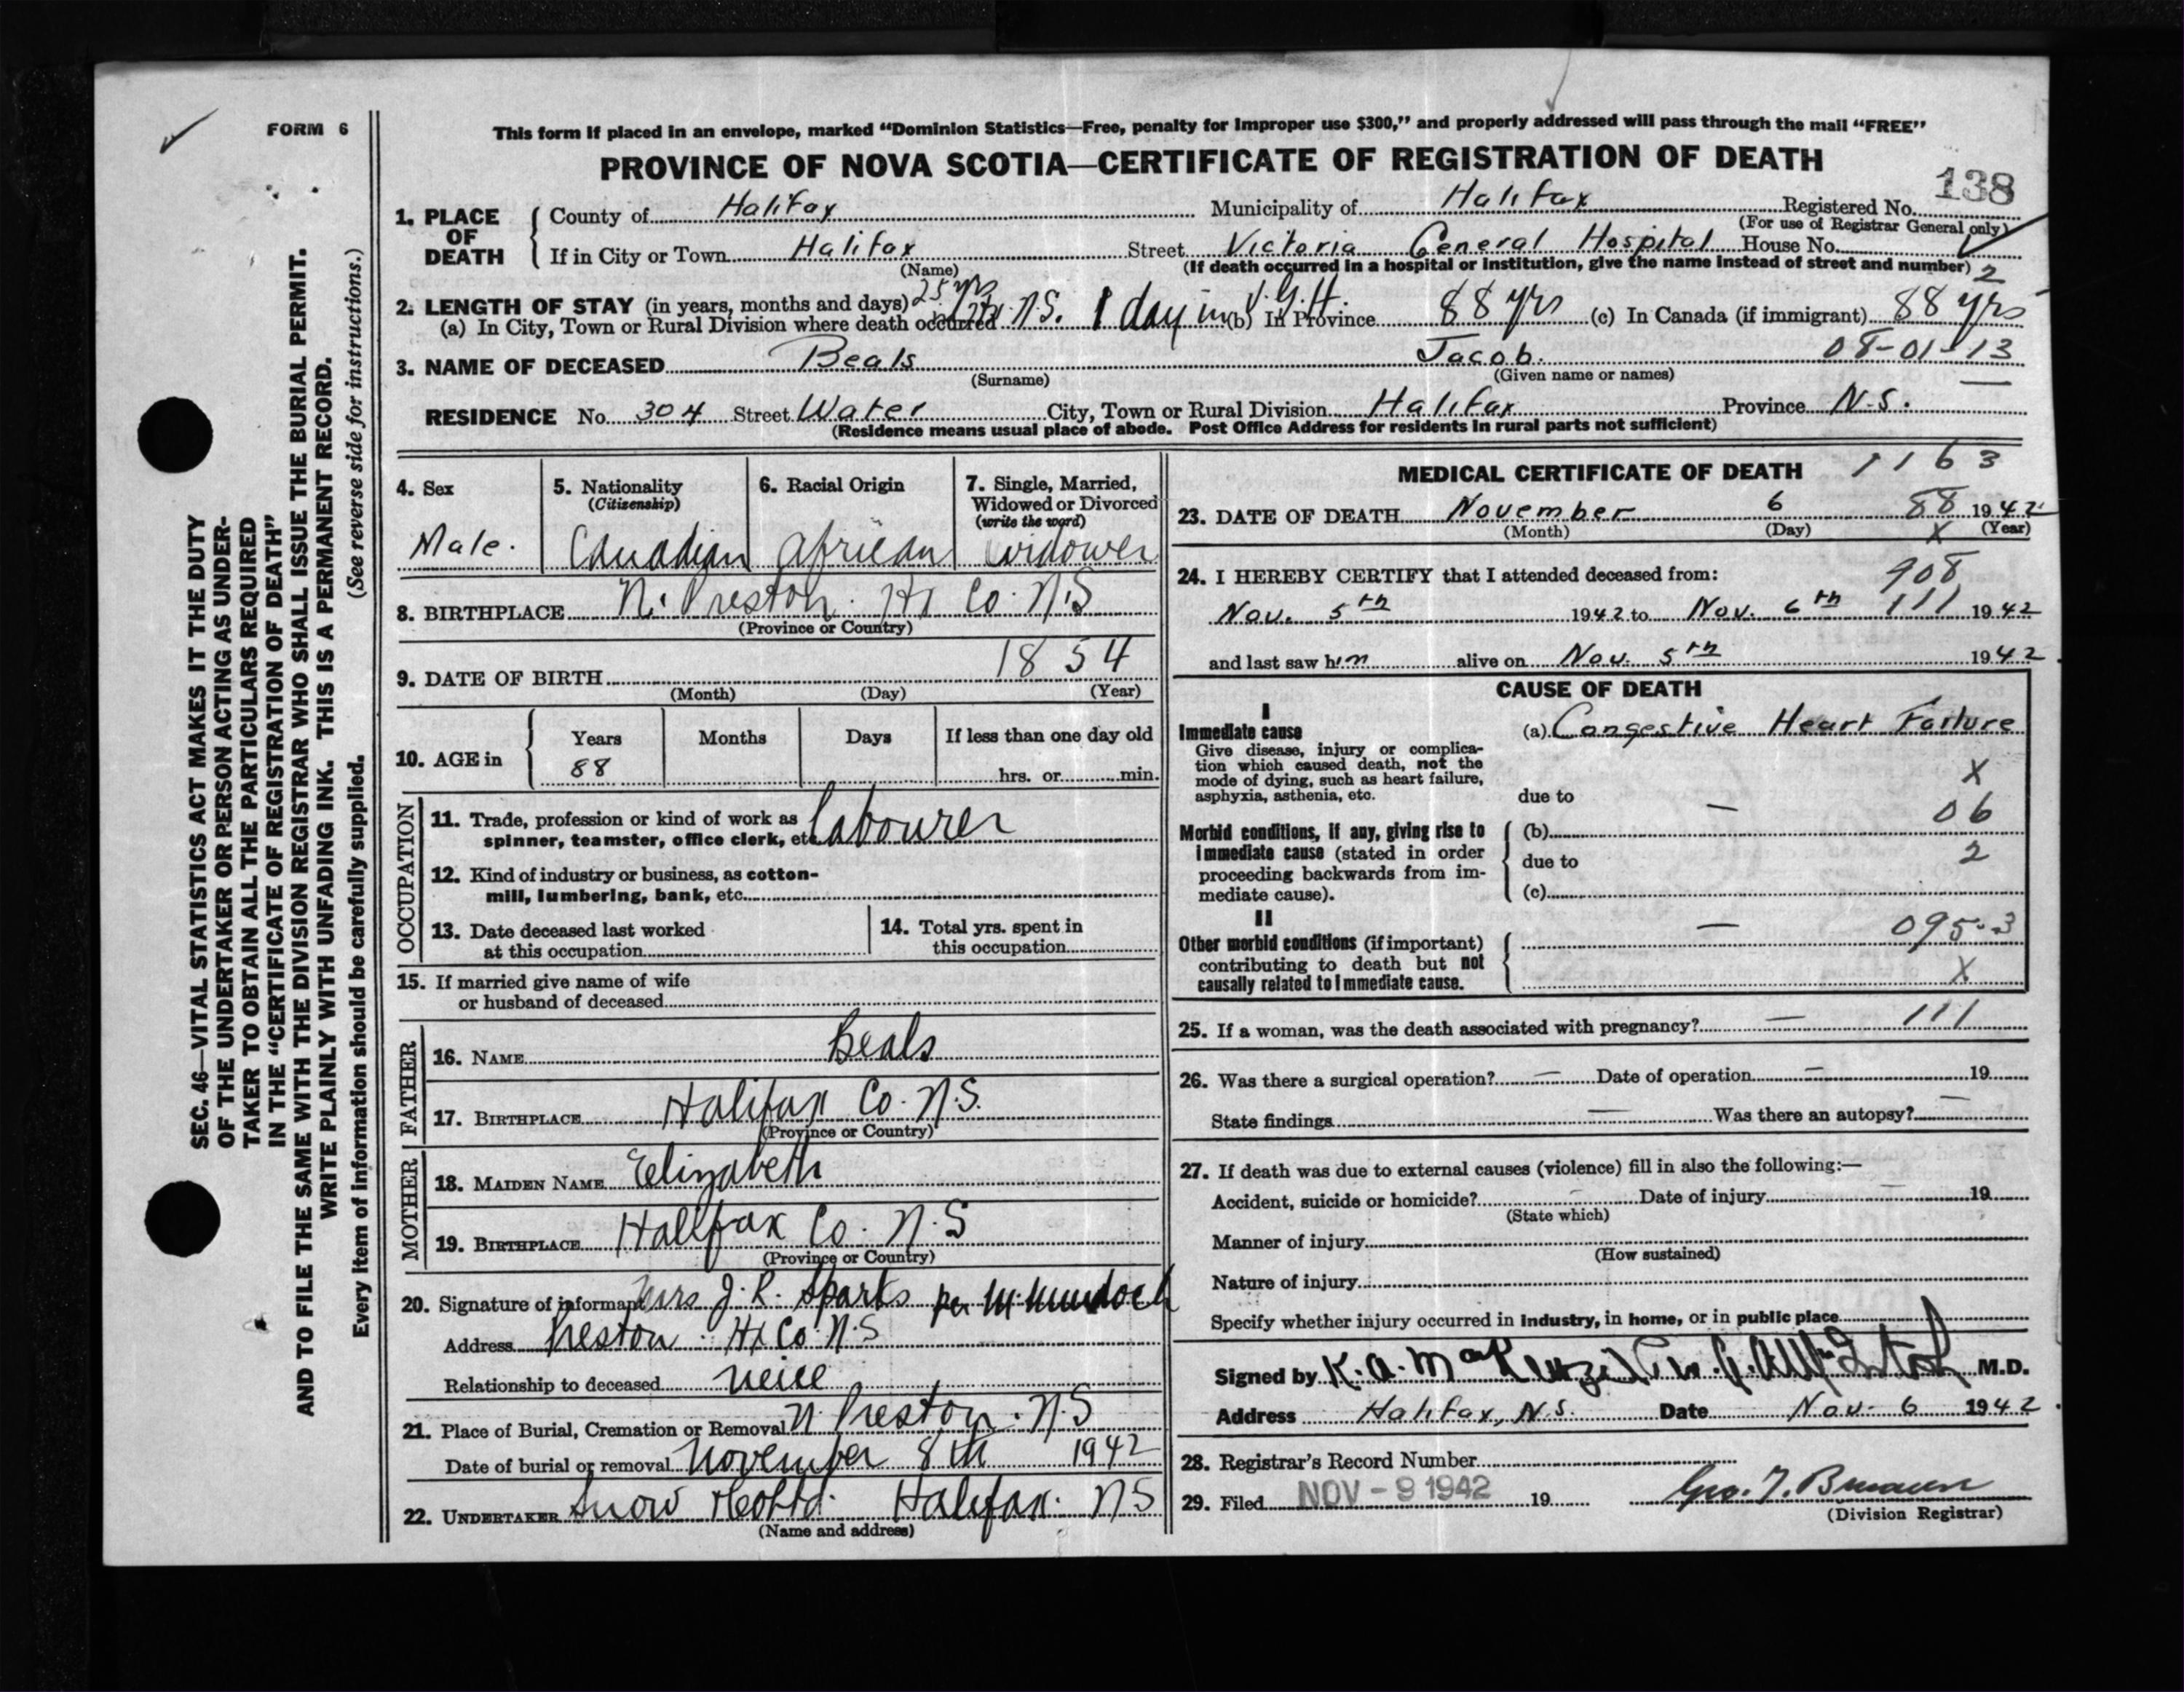 FORM 6
This form if placed in an envelope, marked “Dominion Statistics—Free, penalty for improper use $300,” and properly addressed will pass through the mail “FREE”
PROVINCE OF NOVA SCOTIA—CERTIFICATE OF REGISTRATION OF DEATH
138
1. PLACE OF DEATH
County of Halifax Municipality of Halifax Registered No.
(For use of Registrar General only)
If in City or Town Halifax Street Victoria General Hospital House No.
(Name) (If death occurred in a hospital or institution, give the name instead of street and number) 2
2. LENGTH OF STAY (in years, months and days) 25 yrs
(a) In City, Town or Rural Division where death occurred N.S. 1 day in V.G.H. (b) In Province 88 yrs (c) In Canada (if immigrant) 88 yrs
3. NAME OF DECEASED Beals Jacob. 08-01-13
(Surname) (Given name or names)
RESIDENCE No. 304 Street Water City, Town or Rural Division Halifax Province N.S.
(Residence means usual place of abode. Post Office Address for residents in rural parts not sufficient)
4. Sex
Male.
5. Nationality
(Citizenship)
Canadian
6. Racial Origin
African
7. Single, Married,
Widowed or Divorced
(write the word)
widower
8. BIRTHPLACE N. Preston. Hx Co. N.S
(Province or Country)
9. DATE OF BIRTH 1854
(Month) (Day) (Year)
10. AGE in
Years Months Days If less than one day old
88 hrs. or min.
OCCUPATION
11. Trade, profession or kind of work as
spinner, teamster, office clerk, etc. labourer
12. Kind of industry or business, as cotton-
mill, lumbering, bank, etc.
13. Date deceased last worked
at this occupation
14. Total yrs. spent in
this occupation
15. If married give name of wife
or husband of deceased
FATHER
16. NAME Beals
17. BIRTHPLACE Halifax Co. N.S.
(Province or Country)
MOTHER
18. MAIDEN NAME Elizabeth
19. BIRTHPLACE Halifax Co. N.S
(Province or Country)
20. Signature of informant Mrs J. R. Sparks per M. Murdoch
Address Preston. Hx Co. N.S
Relationship to deceased neice
21. Place of Burial, Cremation or Removal N. Preston. N.S
Date of burial or removal November 8th 1942
22. UNDERTAKER Snow & Co Ltd. Halifax. NS
(Name and address)
MEDICAL CERTIFICATE OF DEATH 1163
23. DATE OF DEATH November 6 88 1942
(Month) (Day) X (Year)
24. I HEREBY CERTIFY that I attended deceased from: 908
Nov. 5th 1942 to Nov. 6th 111 1942
and last saw him alive on Nov. 5th 1942.
CAUSE OF DEATH
I
Immediate cause
Give disease, injury or complica-
tion which caused death, not the
mode of dying, such as heart failure,
asphyxia, asthenia, etc.
(a) Congestive Heart Failure
X
due to —
06
Morbid conditions, if any, giving rise to
immediate cause (stated in order
proceeding backwards from im-
mediate cause).
(b)
due to 2
(c)
II
Other morbid conditions (if important)
contributing to death but not
causally related to immediate cause.
— 095-3
X
25. If a woman, was the death associated with pregnancy? — 111
26. Was there a surgical operation? — Date of operation — 19
State findings — Was there an autopsy? —
27. If death was due to external causes (violence) fill in also the following:—
Accident, suicide or homicide? — Date of injury — 19
(State which)
Manner of injury
(How sustained)
Nature of injury
Specify whether injury occurred in industry, in home, or in public place
Signed by K. A. MacKenzie M.D.
Address Halifax, N.S. Date Nov. 6 1942.
28. Registrar's Record Number
29. Filed NOV - 9 1942 19
(Division Registrar)
SEC. 46—VITAL STATISTICS ACT MAKES IT THE DUTY
OF THE UNDERTAKER OR PERSON ACTING AS UNDER-
TAKER TO OBTAIN ALL THE PARTICULARS REQUIRED
IN THE “CERTIFICATE OF REGISTRATION OF DEATH”
AND TO FILE THE SAME WITH THE DIVISION REGISTRAR WHO SHALL ISSUE THE BURIAL PERMIT.
WRITE PLAINLY WITH UNFADING INK. THIS IS A PERMANENT RECORD.
Every item of information should be carefully supplied. (See reverse side for instructions.)